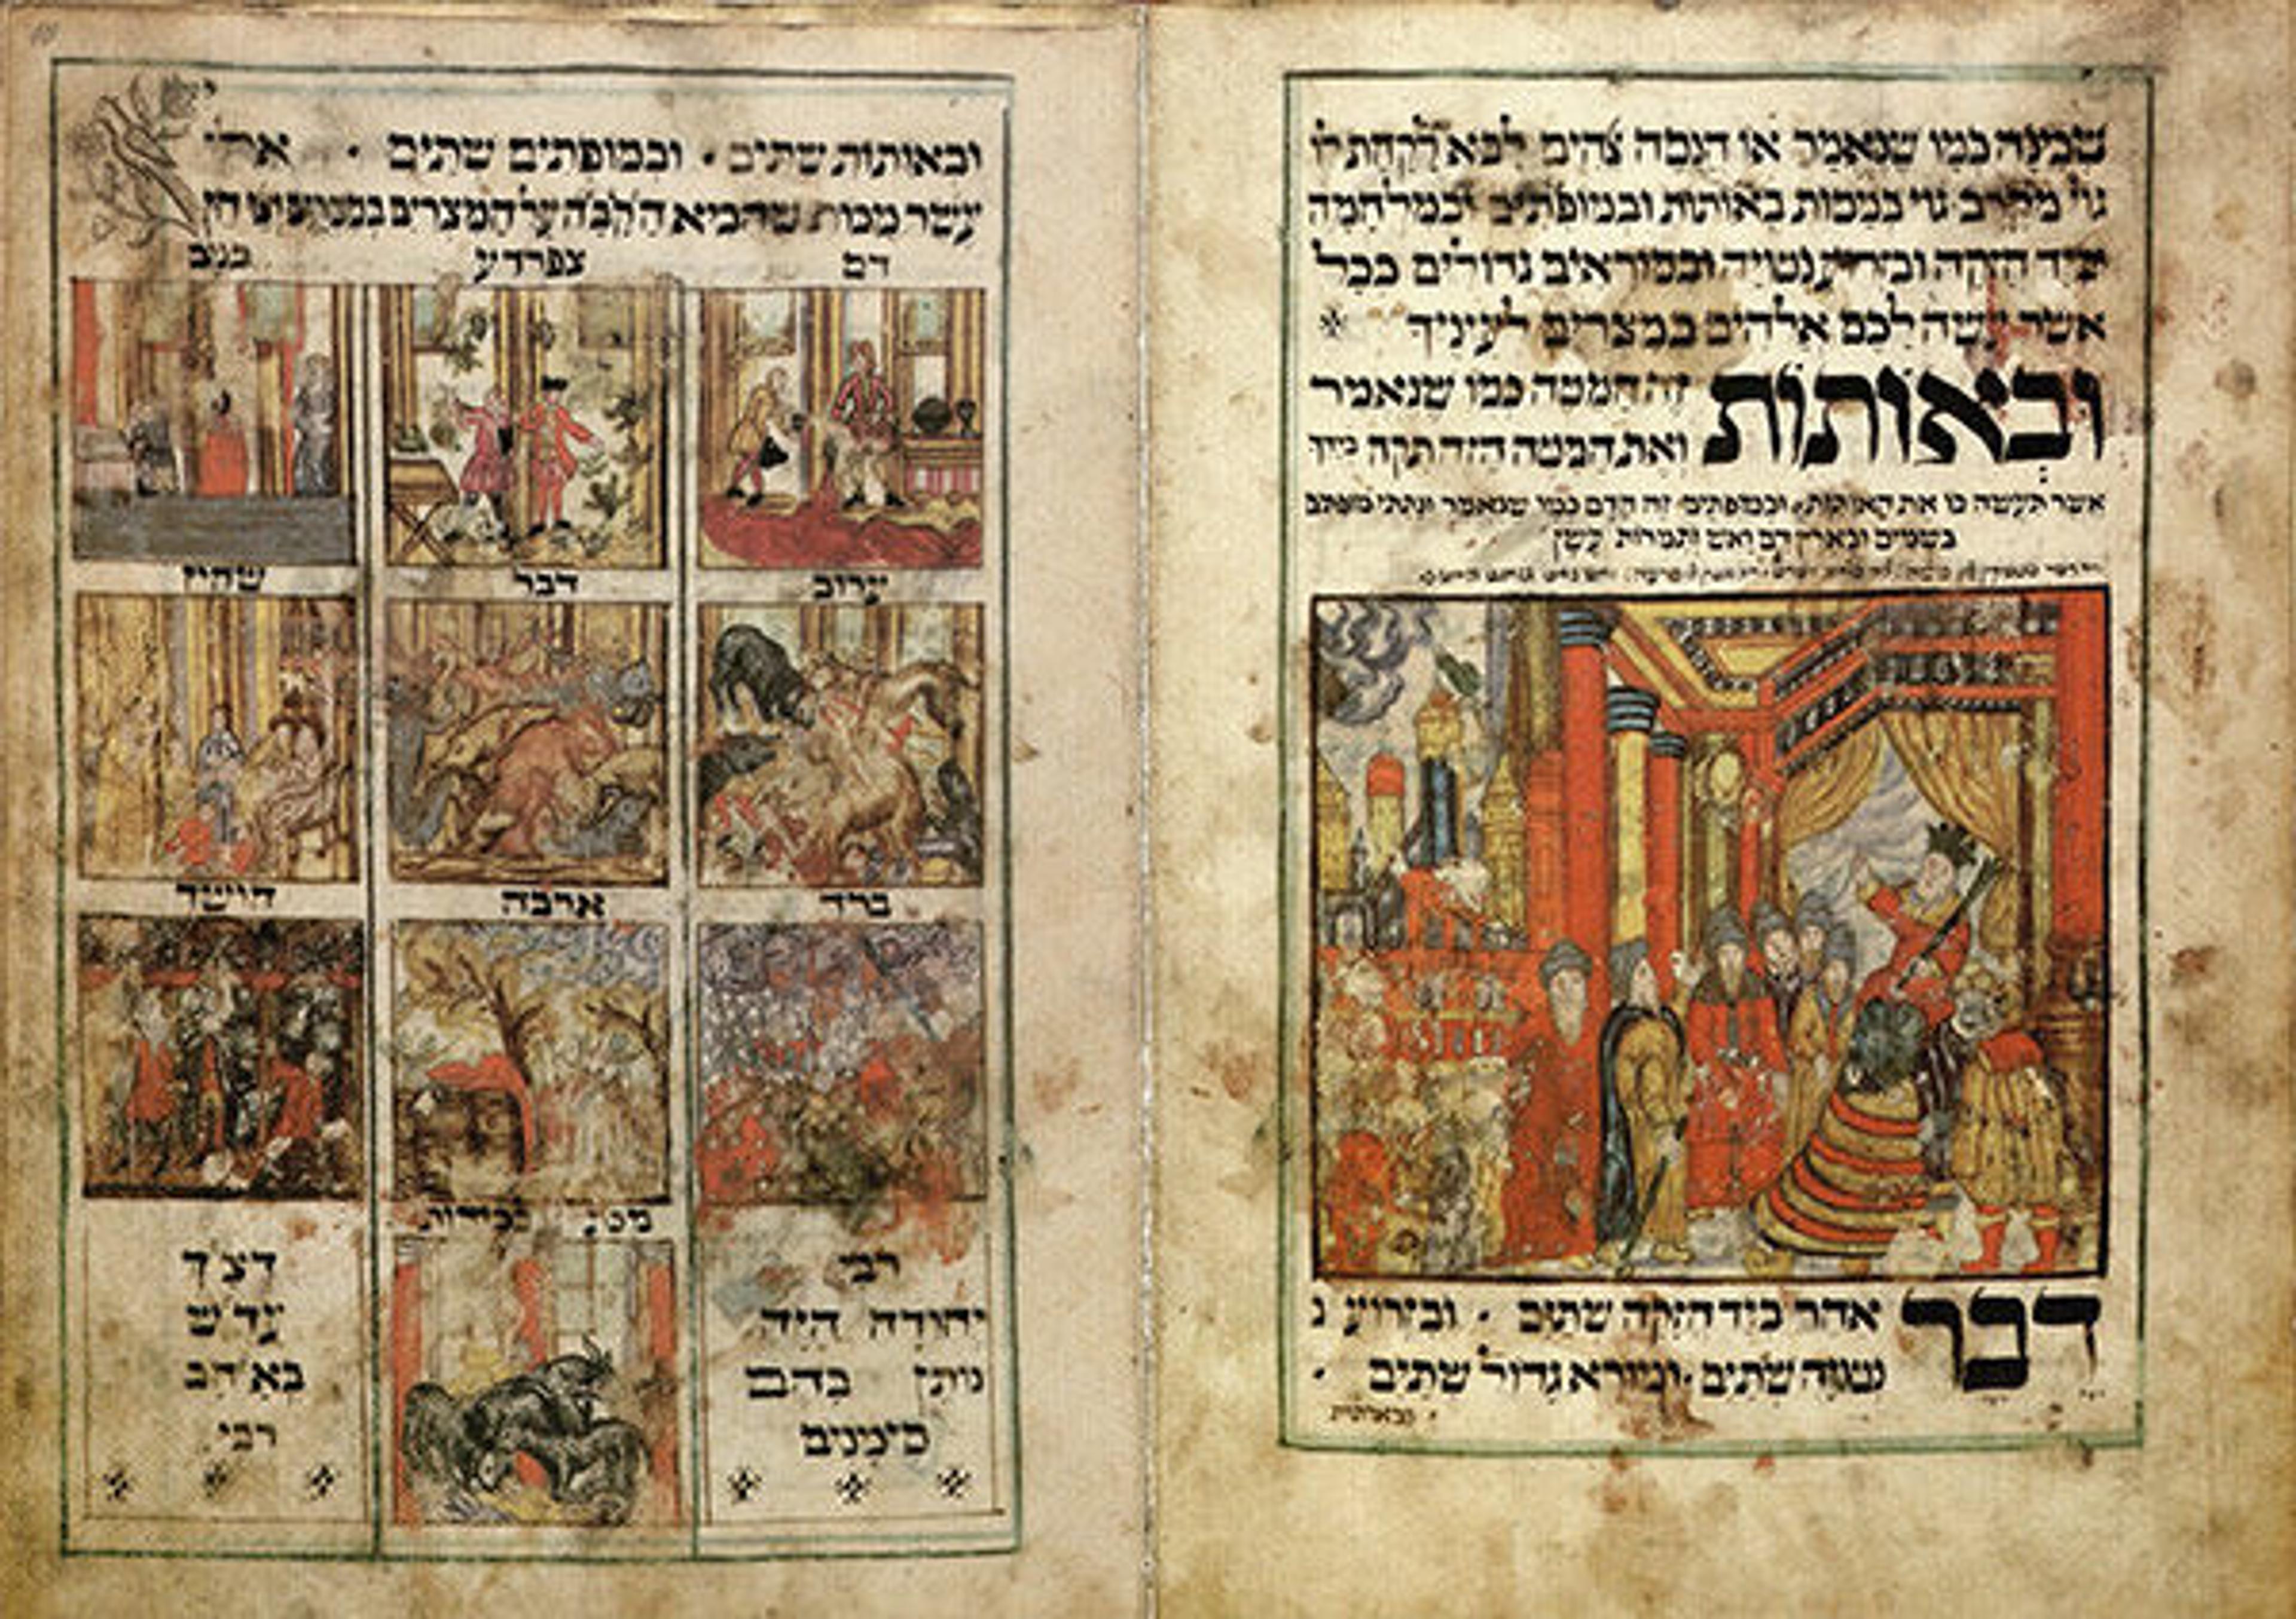 שכינה כמו שנאמר או הנסה אלהים לבא לקחת לו
גוי מקרב גוי במסות באותות ובמופתים ובמלחמה
וביד חזקה ובזרוע נטויה ובמוראים גדולים ככל
אשר עשה לכם אלהים במצרים לעיניך
ובאותות זה המטה כמו שנאמר
ואת המטה הזה תקח בידך
אשר תעשה בו את האותות ובמופתים זה הדם כמו שנאמר ונתתי מופתים
בשמים ובארץ דם ואש ותמרות עשן
דבר אחר ביד חזקה שתים · ובזרוע נ
נטויה שתים · ובמורא גדול שתים ·
ובאותות
ובאותות שתים · ובמופתים שתים · אלו
עשר מכות שהביא הקבה על המצרים במצרים ואלו הן
דם צפרדע כנים
ערוב דבר שחין
ברד ארבה חושך
מכת בכורות
רבי
יהודה היה
נותן בהם
סימנים
דצך
עדש
באחב
רבי